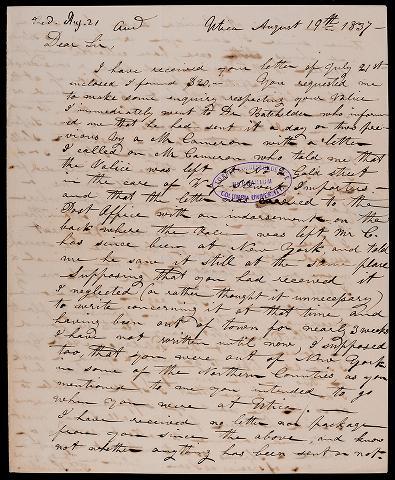 Recd. Aug. 21 And Utica August 19th 1837 –
Dear Sir,
I have received your letter of July 21st
inclosed I found $20.– You requested me
to make some enquiry respecting your Valice
I immediately went to Dr Batchelder who inform-
ed me that he had sent it a day or two pre-
vious by a Mr Cameron with a letter
I called on Mr Cameron who told me that
the Valice was left Gold street
in the care of Importers –
and that the letter to the
Post Office with an indorsement on the
back where the Valice was left Mr C.
has since been at New York and told
me he saw it still at the same place
Supposing that you had received it
I neglected (or rather thought it unnecessary)
to write concerning it at that time and
having been out of town for nearly 3 weeks
I have not written until now. I supposed
too, that you were out of New York
in some of the Northern Counties as you
mentioned to me you intended to go
when you were at Utica.
I have received no letter nor package
from you since the above, and know
not whether anything has been sent or not.
COLUMBIA UNIVERSITY